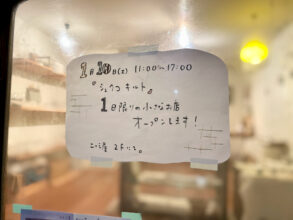 1月10日(土) 11:00〜17:00
『シュウコ キルト』
1日限りの小さなお店
オープンします!
この建 2Fにて。